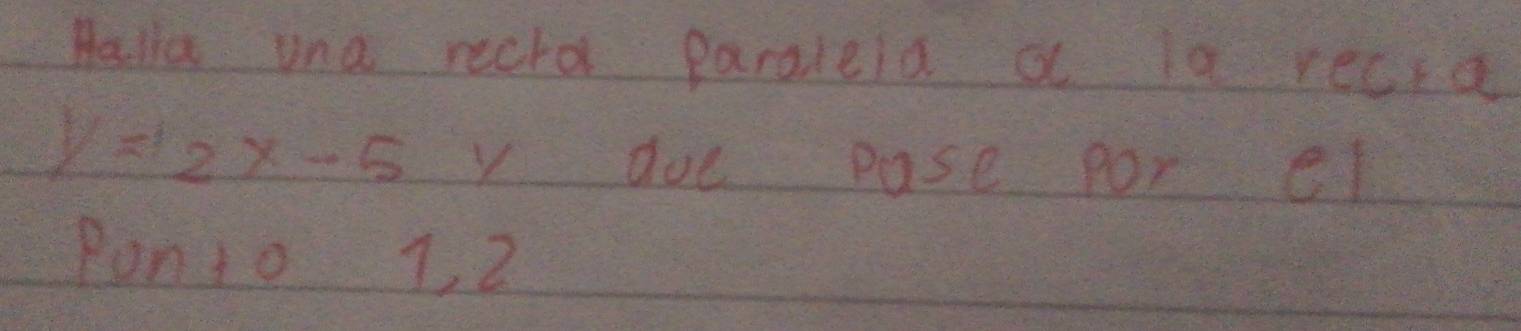 Halla una recta paralela a la recta
y = 2x - 5 y que pase por el
Punto 1,2